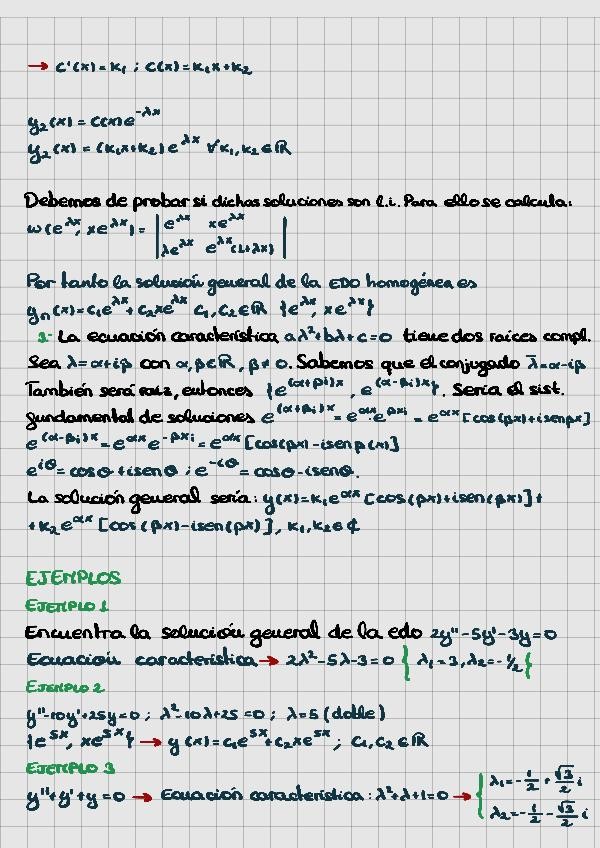 → C'(x)=K₁ ; C(x)=K₁x+K₂
y₂(x) = C(x)e^-λx
y₂(x) = (K₁x+K₂) e^λx ∀K₁,K₂∈ℝ
Debemos de probar si dichas soluciones son l.i. Para ello se calcula:
ω(e^λx, xe^λx) = | e^λx xe^λx |
| λe^λx e^λx(1+λx) |
Por tanto la solución general de la EDO homogénea es
yₙ(x)=C₁e^λx+C₂xe^λx C₁,C₂∈ℝ {e^λx, xe^λx}
3- La ecuación característica aλ²+bλ+c=0 tiene dos raíces compl.
Sea λ=α+iβ con α,β∈ℝ, β≠0. Sabemos que el conjugado λ̄=α-iβ
También será raíz, entonces {e^(α+βi)x, e^(α-βi)x}. Sería el sist.
fundamental de soluciones e^(α+βi)x = e^αx·e^βxi = e^αx [cos(βx)+isenβx]
e^(α-βi)x = e^αx e^-βxi = e^αx [cos(βx)-isenβ(x)]
e^iθ = cosθ+isenθ ; e^-iθ = cosθ-isenθ.
La solución general sería: y(x)=K₁e^αx [cos(βx)+isen(βx)]+
+K₂e^αx [cos(βx)-isen(βx)], K₁,K₂∈ℂ
EJEMPLOS
EJEMPLO 1
Encuentra la solución general de la edo 2y''-5y'-3y=0
Ecuación característica → 2λ²-5λ-3=0 { λ₁=3, λ₂=-1/2 }
EJEMPLO 2
y''-10y'+25y=0 ; λ²-10λ+25=0 ; λ=5 (doble)
{e^5x, xe^5x} → y(x)=C₁e^5x+C₂xe^5x ; C₁,C₂∈ℝ
EJEMPLO 3
y''+y'+y=0 → Ecuación característica: λ²+λ+1=0 → { λ₁=-1/2+√3/2 i
λ₂=-1/2-√3/2 i